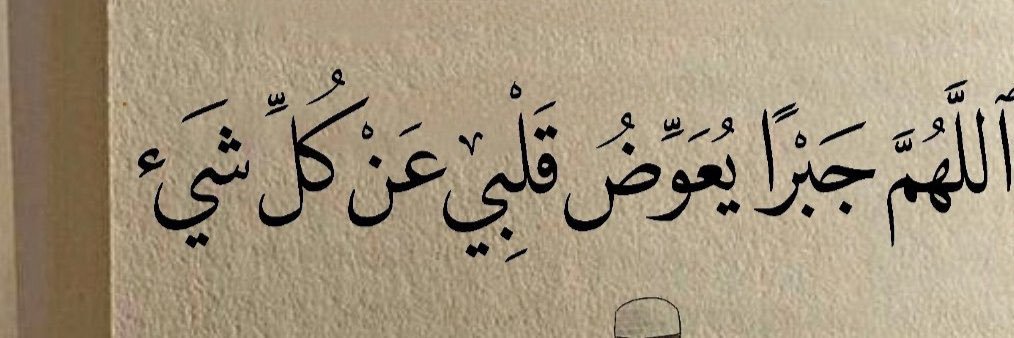 ٱللَّهُمَّ جَبْرًا يُعَوِّضُ قَلْبِيْ عَنْ كُلِّ شَيء